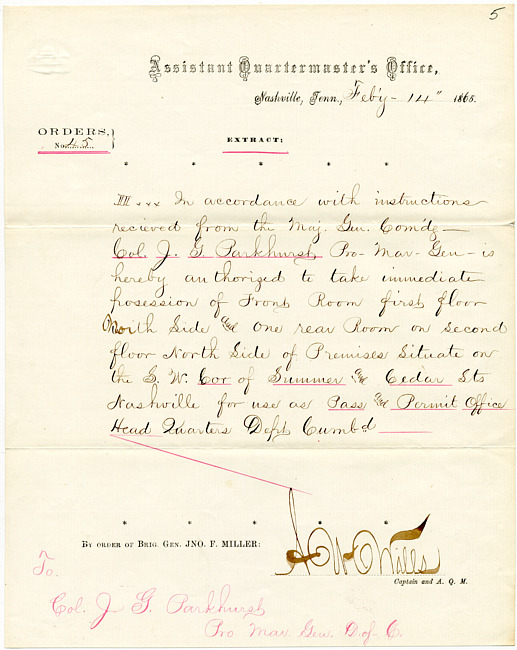 5
Assistant Quartermaster's Office,
Nashville, Tenn., Feb'y - 14" 1865.
ORDERS,
No. 45
EXTRACT:
* * * * *
II... In accordance with instructions
recieved from the Maj. Gen. Com'd'g -
Col. J. G. Parkhurst, Pro- Mar- Gen- is
hereby authorized to take immediate
prosession of Front Room first floor
North Side and One rear Room on second
floor North Side of Premises Situate on
the S. W. Cor of Summer and Cedar Sts
Nashville for use as Pass and Permit Office
Head Quarters Dept Cumbd
* * * * *
BY ORDER OF BRIG. GEN. JNO. F. MILLER:
A W Wills
Captain and A. Q. M.
To.
Col. J. G. Parkhurst
Pro Mar. Gen. D. of. C.